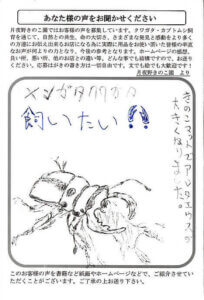 あなた様の声をお聞かせください
月夜野きのこ園ではお客様の声を募集しています。クワガタ・カブトムシ飼
育を通じて、自然との共生、命の大切さ、さまざまな発見と感動をより多く
の方達にお伝え出来るお店になる為に実際に用品をお使い頂いた皆様の率直
なお声が何よりの力となり、今後の参考となります。ホームページの感想、
良い所、悪い所、他のお店との違い等、どんな事でも結構ですので、お送りく
ださい。応募はがきの書き方は一切自由です。文でも絵でも大歓迎です!
月夜野きのこ園 より
メンガタクワガタ
飼いたい!!
きのこマットで
大きくなりました。
このお客様の声を書籍など紙面やホームページなどで、ご紹介させてい
ただくことがございます。ご了承の上お送り下さい。